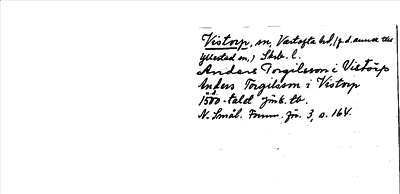 Vistorp, sn, Vartofta hd, (f.d. annex till
Yllestad sn,) Skrb. l.
Anders Torgilsson i Vistorp
Anders Torgilsson i Vistorp
1500-talet jmk. tb.
N. Smål. Fornm. för. 3, s. 164.